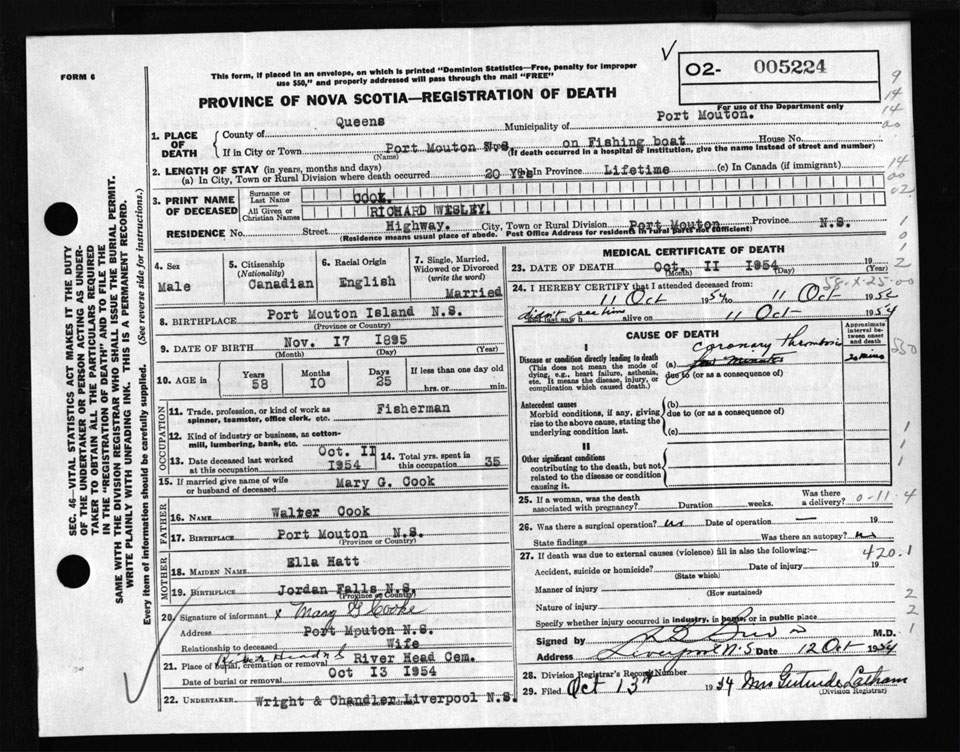 FORM 6
This form, if placed in an envelope, on which is printed "Dominion Statistics—Free, penalty for improper
use $50," and properly addressed will pass through the mail "FREE"
PROVINCE OF NOVA SCOTIA—REGISTRATION OF DEATH
O2- 005224
For use of the Department only
SEC. 46—VITAL STATISTICS ACT MAKES IT THE DUTY
OF THE UNDERTAKER OR PERSON ACTING AS UNDER-
TAKER TO OBTAIN ALL THE PARTICULARS REQUIRED
IN THE "REGISTRATION OF DEATH" AND TO FILE THE
SAME WITH THE DIVISION REGISTRAR WHO SHALL ISSUE THE BURIAL PERMIT.
WRITE PLAINLY WITH UNFADING INK. THIS IS A PERMANENT RECORD.
Every item of information should be carefully supplied. (See reverse side for instructions.)
1. PLACE OF DEATH
County of Queens Municipality of Port Mouton.
If in City or Town Port Mouton N.S. on Fishing boat House No.
(Name) (If death occurred in a hospital or institution, give the name instead of street and number)
2. LENGTH OF STAY (in years, months and days)
(a) In City, Town or Rural Division where death occurred 20 Yrs In Province Lifetime (c) In Canada (if immigrant)
3. PRINT NAME OF DECEASED
Surname or Last Name COOK.
All Given or Christian Names RICHARD WESLEY.
RESIDENCE No. Street Highway. City, Town or Rural Division Port Mouton Province N.S.
(Residence means usual place of abode. Post Office Address for residents in rural parts not sufficient)
4. Sex
Male
5. Citizenship
(Nationality)
Canadian
6. Racial Origin
English
7. Single, Married,
Widowed or Divorced
(write the word)
Married
8. BIRTHPLACE Port Mouton Island N.S.
(Province or Country)
9. DATE OF BIRTH Nov. 17 1895
(Month) (Day) (Year)
10. AGE in
Years Months Days If less than one day old
58 10 25 hrs. or min.
OCCUPATION
11. Trade, profession, or kind of work as
spinner, teamster, office clerk, etc. Fisherman
12. Kind of industry or business, as cotton-
mill, lumbering, bank, etc.
13. Date deceased last worked
at this occupation Oct. II 1954
14. Total yrs. spent
in this occupation 35
15. If married give name of wife
or husband of deceased Mary G. Cook
FATHER
16. NAME Walter Cook
17. BIRTHPLACE Port Mouton N.S.
(Province or Country)
MOTHER
18. MAIDEN NAME Ella Hatt
19. BIRTHPLACE Jordan Falls N.S.
(Province or Country)
20. Signature of informant x Mary G Cooke
Address Port Mputon N.S.
Relationship to deceased Wife
21. Place of burial, cremation or removal River Head Cem.
Date of burial or removal Oct 13 1954
22. UNDERTAKER Wright & Chandler Liverpool N.S.
MEDICAL CERTIFICATE OF DEATH
23. DATE OF DEATH Oct. II 1954 19
(Month) (Day) (Year)
58-X-25-00
24. I HEREBY CERTIFY that I attended deceased from
11 Oct 1954 to 11 Oct 1954
didn't see him alive on 11 Oct 1954
CAUSE OF DEATH
Approximate
interval be-
tween onset
and death
I
Disease or condition directly leading to death
(This does not mean the mode of
dying, e.g., heart failure, asthenia,
etc. It means the disease, injury, or
complication which caused death.)
(a) coronary thrombosis
few minutes
20 mins
due to (or as a consequence of)
Antecedent causes
Morbid conditions, if any, giving
rise to the above cause, stating the
underlying condition last.
(b)
due to (or as a consequence of)
(c)
II
Other significant conditions
contributing to the death, but not
related to the disease or condition
causing it.
25. If a woman, was the death
associated with pregnancy? Duration weeks. Was there
a delivery?
0-11.4
26. Was there a surgical operation? no Date of operation — 19
State findings Was there an autopsy? no
27. If death was due to external causes (violence) fill in also the following:—
420.1
Accident, suicide or homicide? Date of injury 19
(State which)
Manner of injury
(How sustained)
Nature of injury
Specify whether injury occurred in industry, in home, or in public place
Signed by M.D.
Address Liverpool N.S Date 12 Oct 1954
28. Division Registrar's Record Number
29. Filed Oct 13th 1954 Mrs Gertrude Latham
(Division Registrar)